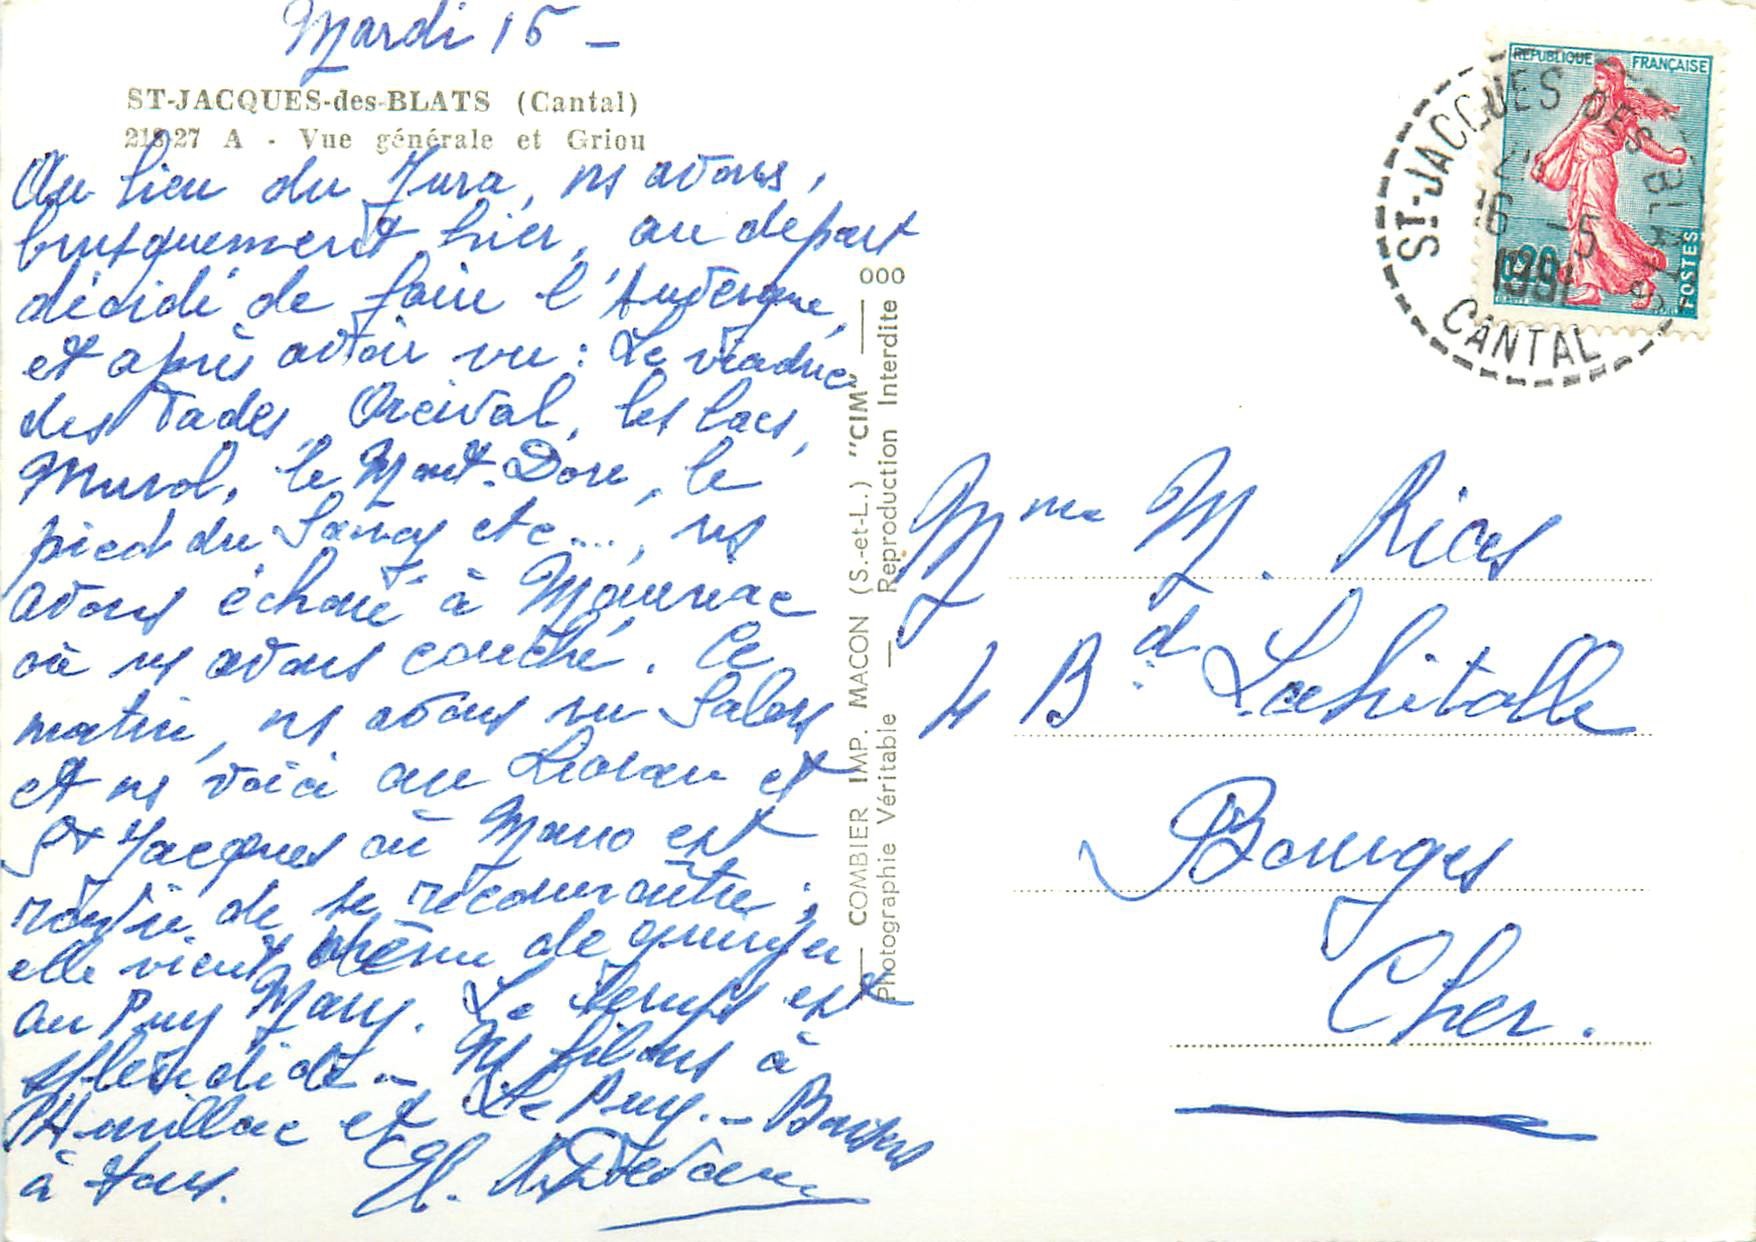 Mardi 16 –
ST-JACQUES-des-BLATS (Cantal)
218-27 A - Vue générale et Griou
Au lieu du Jura, ns avons,
brusquement hier, au départ
décidé de faire l'Auvergne,
et après avoir vu : Le viaduc
des Fades, Orcival, les lacs,
Murol, le Mont-Dore, le
pied du Sancy etc..., ns
avons échoué à Mauriac
où ns avons couché. Ce
matin, ns avons vu Salers
et ns voici au Lioran et
St Jacques où Mano est
ravie de se reconnaître ;
elle vient même de grimper
au Puy Mary. Le temps est
splendide – Ns filons à
Aurillac et Le Puy. – Baisers
à tous.
COMBIER IMP. MACON (S.-et-L.) "CIM" 000
Photographie Véritable — Reproduction Interdite
REPUBLIQUE FRANÇAISE
POSTES
0,20
ST-JACQUES DES BLATS
16 -5
CANTAL
Mme M. Ricas
4 Bd Lahitolle
Bourges
Cher.